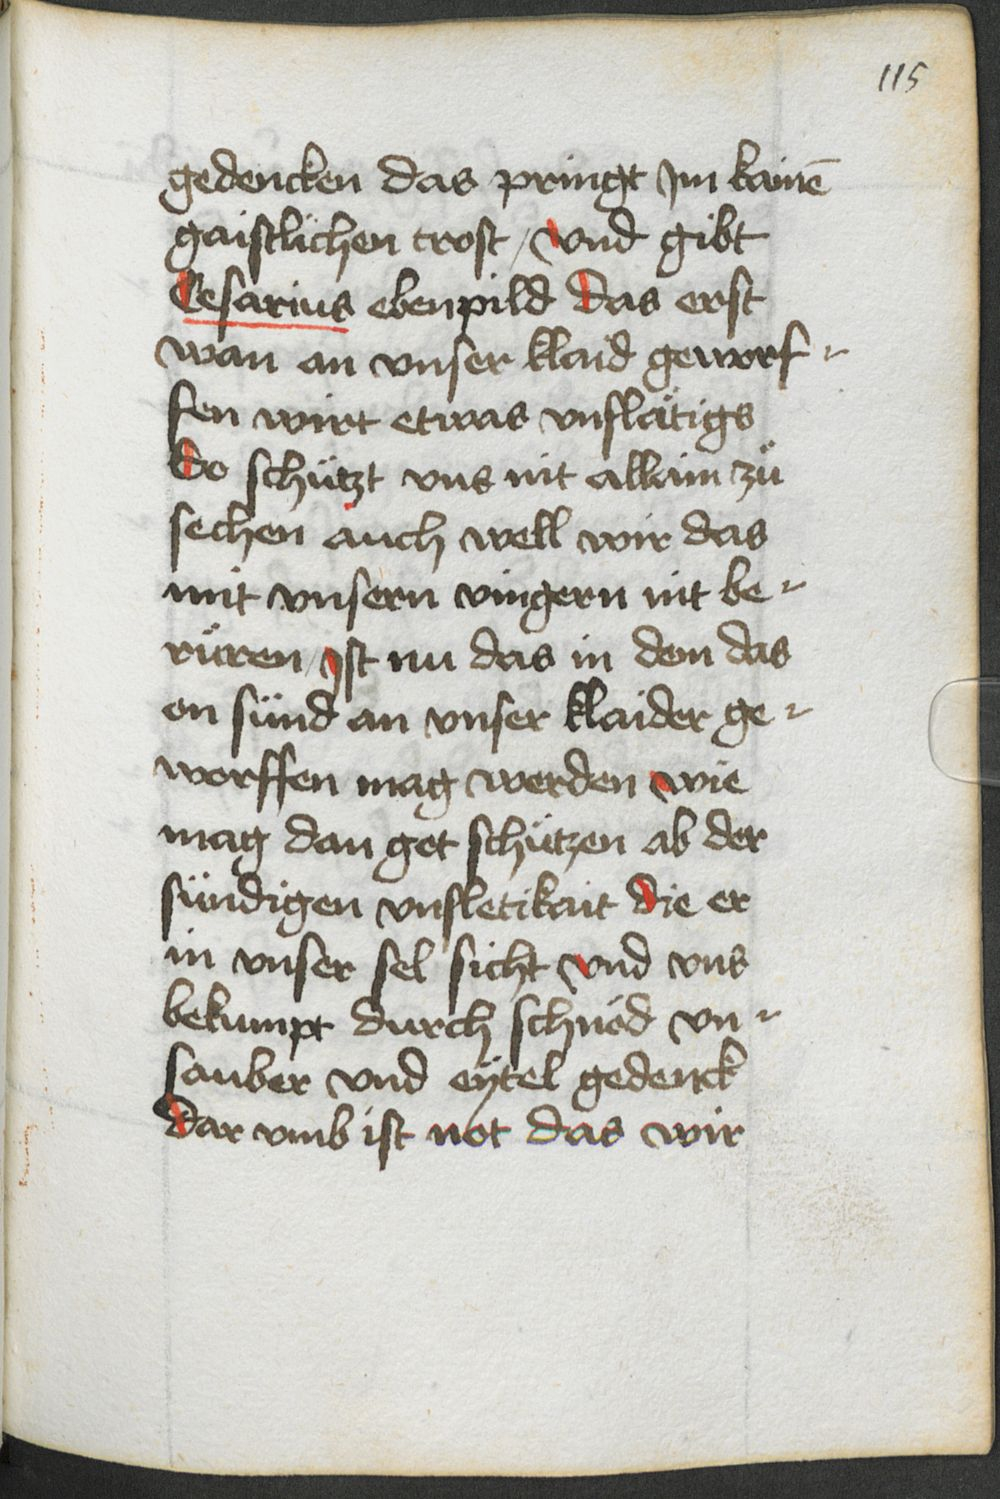 115
gedencken das pringt Im kainē
gaistlichen trost / vnd gibt
Cesarius ebenpild das erst
wan an vnser klaid geworf-
fen wirt etwas vnflätigs
So schützt vns nit allain zů
sechen auch well wir das
mit vnsern vingern nit be-
rüren / Ist nu das in dem das
on sünd an vnser klaider ge-
worffen mag werden wie
mag dan got schützen ab der
sündigen vnfletikait die er
in vnser sel sicht vnd vns
bekumpt durch schnöd vn-
sauber vnd eÿtel gedenck
dar vmb ist not das wir